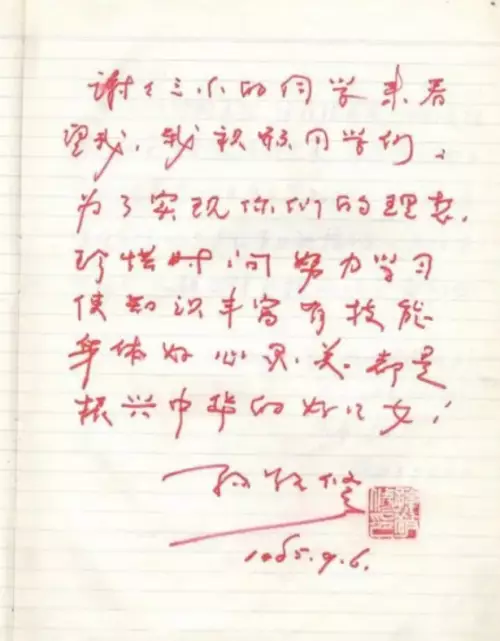 谢々三小的同学来看
望我，我祝愿同学们、
为了实现你们的理想，
珍惜时间努力学习
使知识丰富有技能
身体好心灵美都是
振兴中华的好儿女！
孙敬修
1985.9.6.